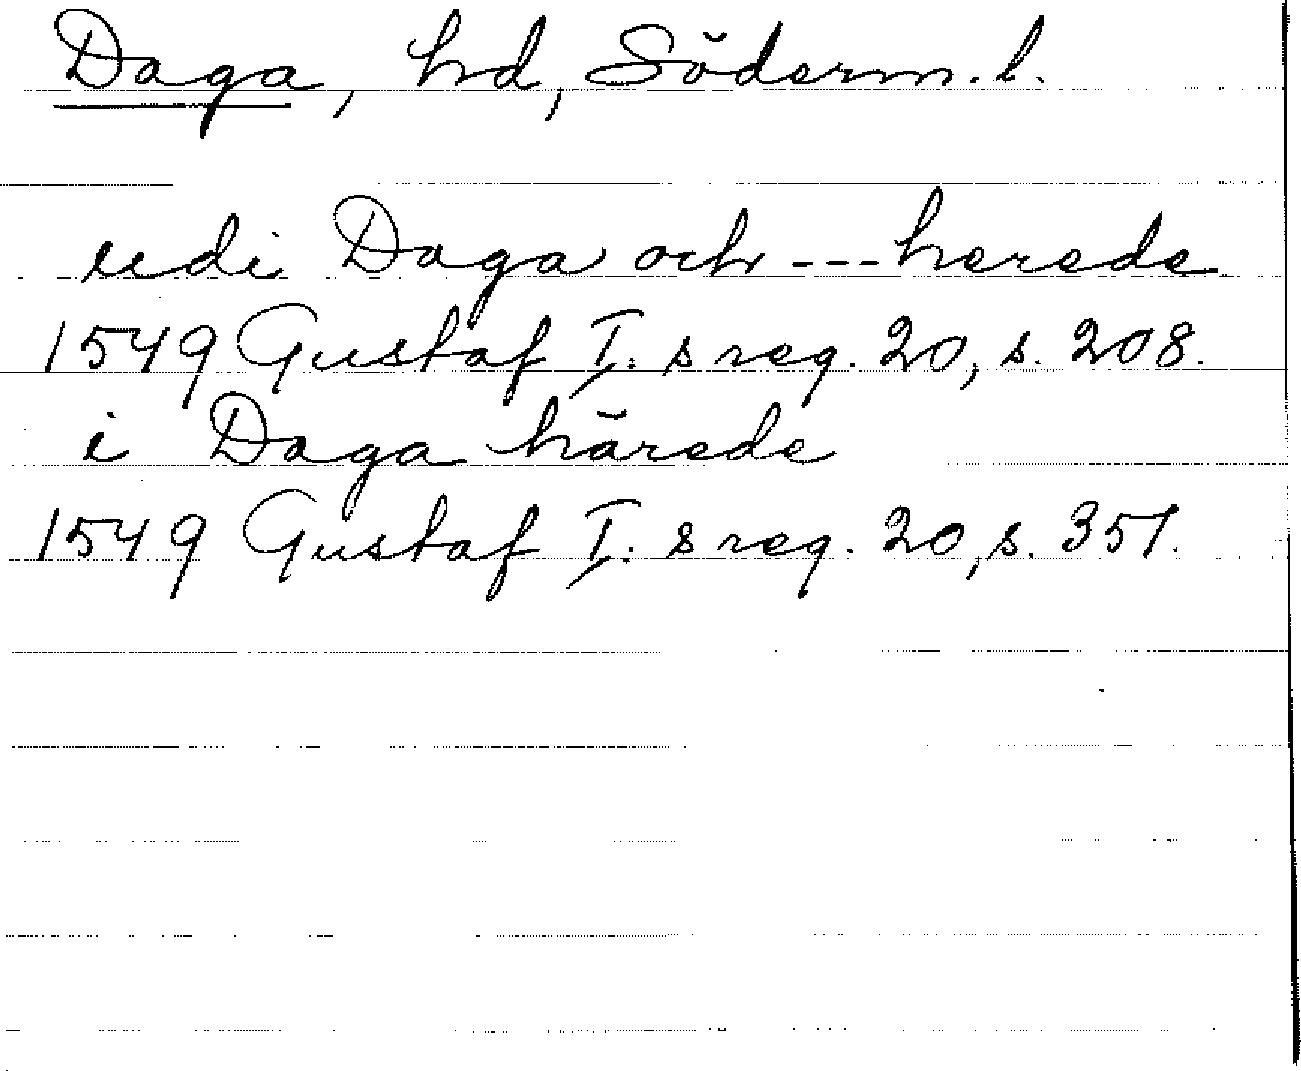 Daga, hd, Söderm. l.
udi Daga och --- herede
1549 Gustaf I: s reg. 20, s. 208.
i Daga härede
1549 Gustaf I: s reg. 20, s. 351.